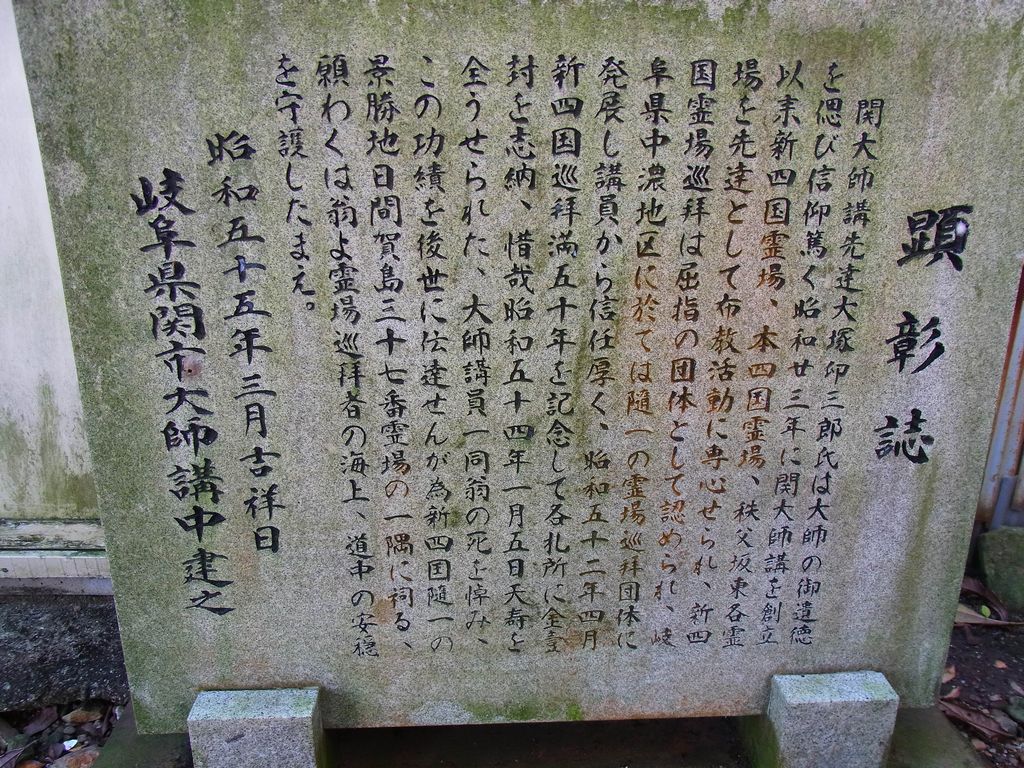 顕彰誌
関大師講先達大塚仰三郎氏は大師の御遺徳
を偲び信仰篤く昭和廿三年に関大師講を創立
以来新四国霊場、本四国霊場、秩父坂東各霊
場を先達として布教活動に専心せられ、新四
国霊場巡拝は屈指の団体として認められ、岐
阜県中濃地区に於ては随一の霊場巡拝団体に
発展し講員から信任厚く、昭和五十二年四月
新四国巡拝満五十年を記念して各札所に金壱
封を志納、惜哉昭和五十四年一月五日天寿を
全うせられた、大師講員一同翁の死を悼み、
この功績を後世に伝達せんが為新四国随一の
景勝地日間賀島三十七番霊場の一隅に祠る、
願わくは翁よ霊場巡拝者の海上、道中の安穏
を守護したまえ。
昭和五十五年三月吉祥日
岐阜県関市大師講中建之